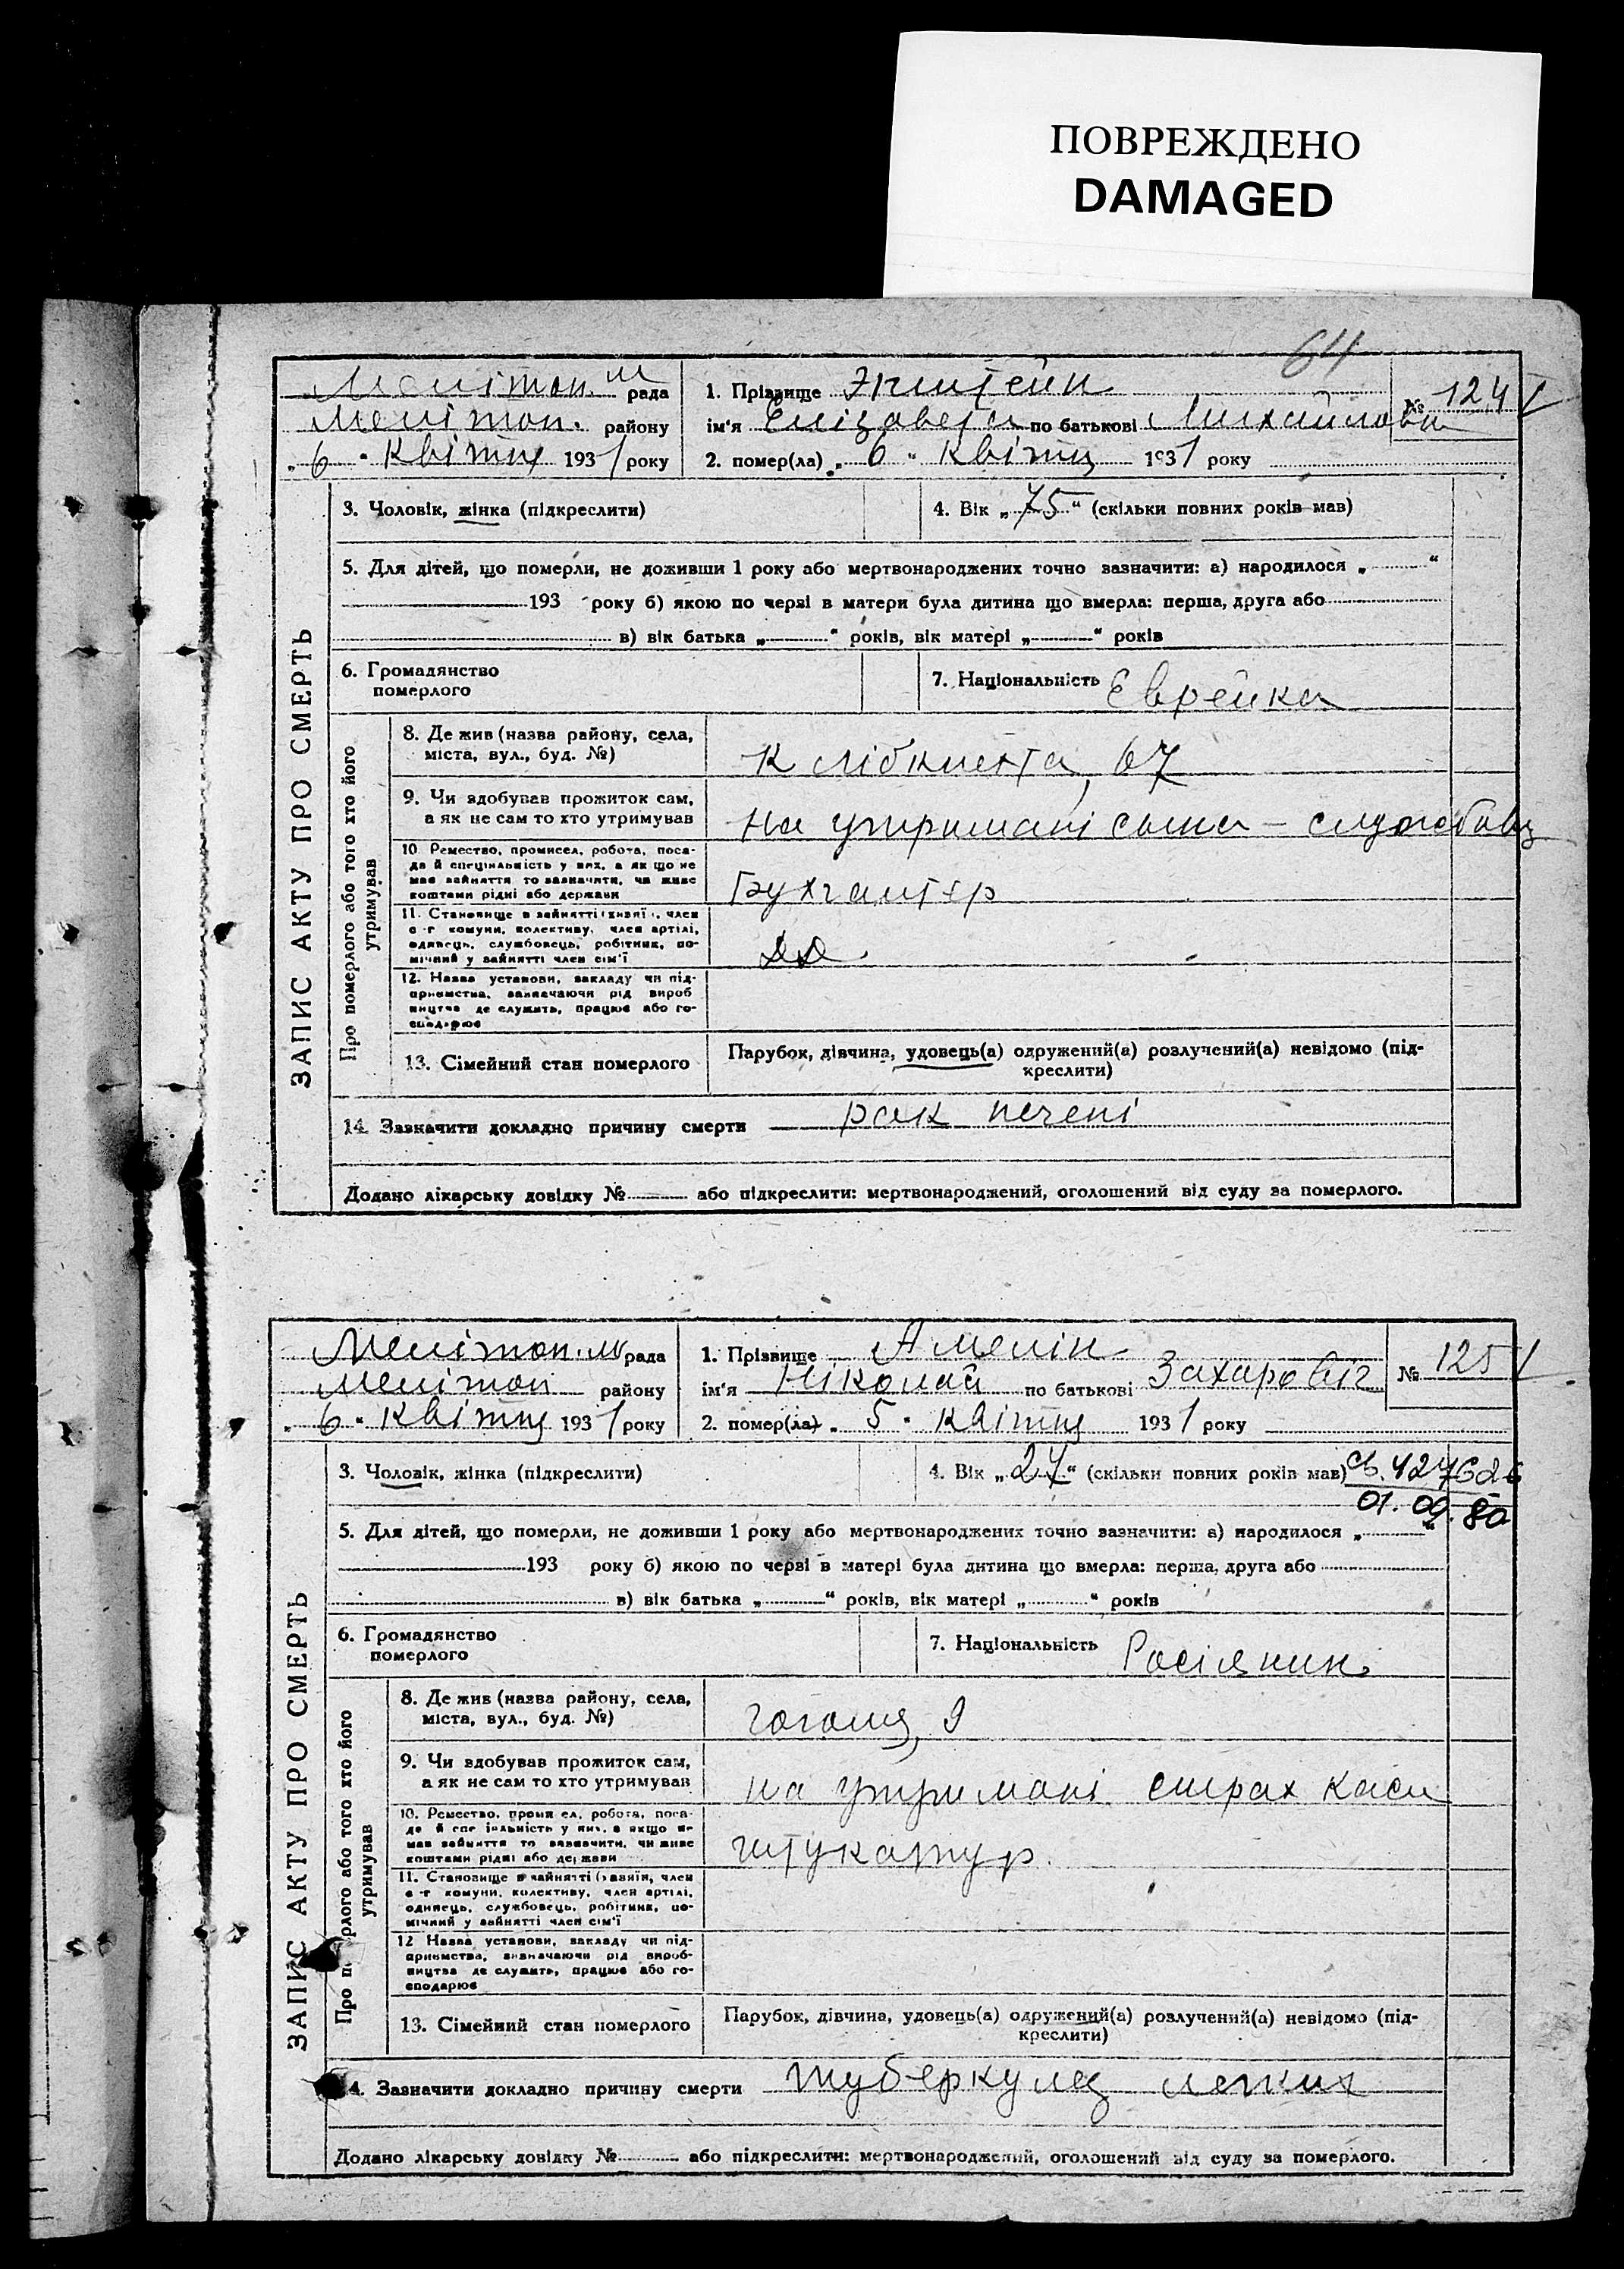 ПОВРЕЖДЕНО
DAMAGED
64
Мелітоп. м рада
1. Прізвище Эпштейн
№ 124
Мелітоп. району
ім'я Елізавета по батькові Михайловна
„ 6 " Квітня 1931 року
2. помер(ла) „ 6 " Квітня 1931 року
ЗАПИС АКТУ ПРО СМЕРТЬ
3. Чоловік, жінка (підкреслити)
4. Вік „ 75 " (скільки повних років мав)
5. Для дітей, що померли, не доживши 1 року або мертвонароджених точно зазначити: а) народилося „ "
193 року б) якою по черзі в матери була дитина що вмерла: перша, друга або
в) вік батька „ " років, вік матері „ " років
6. Громадянство
померлого
7. Національність Еврейка
Про померлого або того хто його
утримував
8. Де жив (назва району, села,
міста, вул., буд. №)
К Лібкнехта, 67
9. Чи здобував прожиток сам,
а як не сам то хто утримував
На утримані сына – службовц
10. Ремество, промисел, робота, поса-
да й спеціяльність у них, а як що не
мав зайняття то зазначити, чи живе
коштами рідні або держави
Бухгалтер
11. Становище в зайнятті (хазяїн, член
с-г комуни, колективу, член артілі,
одинець, службовець, робітник, по-
мічний у зайнятті член сім'ї
12. Назва установи, закладу чи під-
приємства, зазначаючи рід вироб
ництва де служить, працює або го-
сподарює
13. Сімейний стан померлого
Парубок, дівчина, удовець(а) одружений(а) розлучений(а) невідомо (під-
креслити)
14. Зазначити докладно причину смерти рак печені
Додано лікарську довідку № або підкреслити: мертвонароджений, оголошений від суду за померлого.
Мелітоп. м рада
1. Прізвище Амелін
№ 125
Мелітоп району
ім'я Ніколай по батькові Захаровіч
„ 6 " Квітня 1931 року
2. помер(ла) „ 5 " Квітня 1931 року
ЗАПИС АКТУ ПРО СМЕРТЬ
3. Чоловік, жінка (підкреслити)
4. Вік „ 27 " (скільки повних років мав)
св. 427626
01. 09. 80
5. Для дітей, що померли, не доживши 1 року або мертвонароджених точно зазначити: а) народилося „ "
193 року б) якою по черзі в матері була дитина що вмерла: перша, друга або
в) вік батька „ " років, вік матері „ " років
6. Громадянство
померлого
7. Національність Росіянин
Про п рлого або того хто його
утримував
8. Де жив (назва району, села,
міста, вул., буд. №)
Гоголя, 9
9. Чи здобував прожиток сам,
а як не сам то хто утримував
на утримані страх каси
10. Ремество, промисел, робота, поса-
да й спеціяльність у них, а якщо не
мав зайняття то зазначити, чи живе
коштами рідні або держави
штукатур.
11. Становище в зайнятті (хазяїн, член
с-г комуни, колективу, член артілі,
одинець, службовець, робітник, по-
мічний у зайнятті член сім'ї
12 Назва установи, закладу чи під-
приємства, зазначаючи рід вироб-
ництва де служить, працює або го-
сподарює
13. Сімейний стан померлого
Парубок, дівчина, удовець(а) одружений(а) розлучений(а) невідомо (під-
креслити)
4. Зазначити докладно причину смерти туберкулез легких
Додано лікарську довідку № або підкреслити: мертвонароджений, оголошений від суду за померлого.